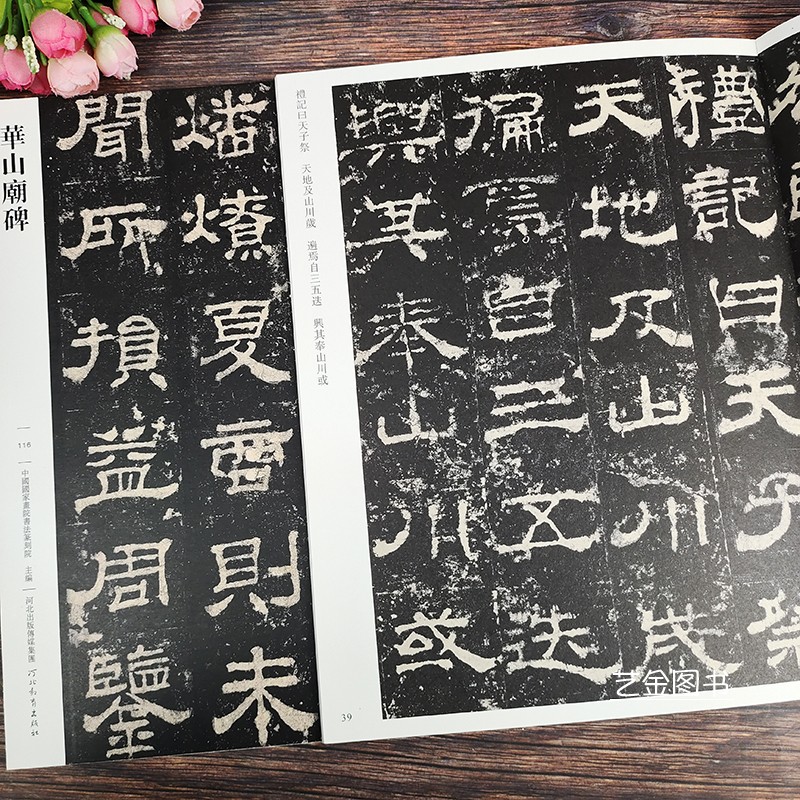 華山廟碑
116
中國國家畫院書法篆刻院 主編
河北出版傳媒集團
河北教育出版社
燔燎夏商則未
聞所損益周鑒
禮記曰天子祭
天地及山川歲
遍焉自三五迭
興其奉山川或
禮記曰天子祭 天地及山川歲 遍焉自三五迭 興其奉山川或
39
艺金图书